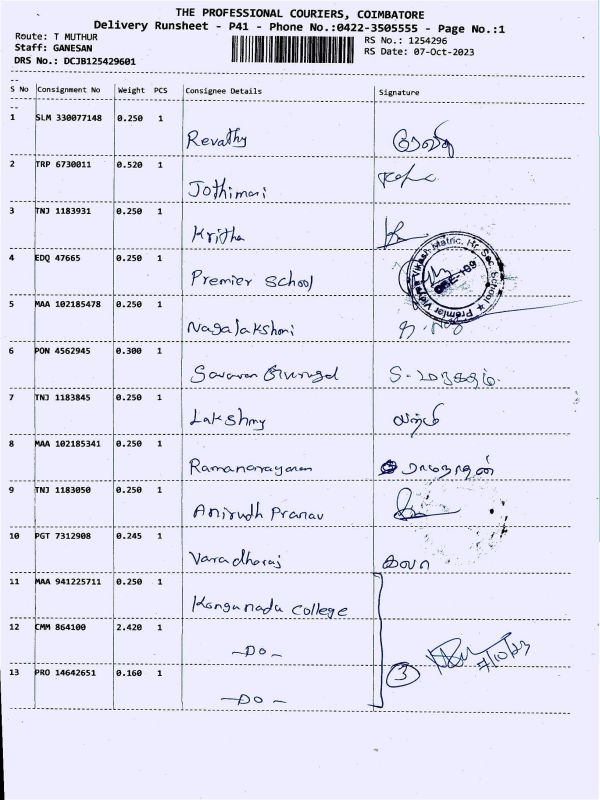 THE PROFESSIONAL COURIERS, COIMBATORE
Delivery Runsheet - P41 - Phone No.:0422-3505555 - Page No.:1
Route: T MUTHUR
RS No.: 1254296
Staff: GANESAN
RS Date: 07-Oct-2023
DRS No.: DCJB125429601
S No Consignment No Weight PCS Consignee Details Signature
1 SLM 330077148 0.250 1
Revathy ரேவதி
2 TRP 6730011 0.520 1
Jothimani
3 TNJ 1183931 0.250 1
Kritha
4 EDQ 47665 0.250 1
Premier School
Matric. Hr. Sec. School ★ Premier
5 MAA 102185478 0.250 1
Nagalakshmi
6 PON 4562945 0.300 1
Saravan
7 TNJ 1183845 0.250 1
Lakshmy
8 MAA 102185341 0.250 1
Ramanarayanan
9 TNJ 1183050 0.250 1
Anirudh Pranav
10 PGT 7312908 0.245 1
Varadharaj கலா
11 MAA 941225711 0.250 1
Kongunadu College
12 CMM 864100 2.420 1
-Do-
7/10/23
13 PRO 14642651 0.160 1
3
-Do-